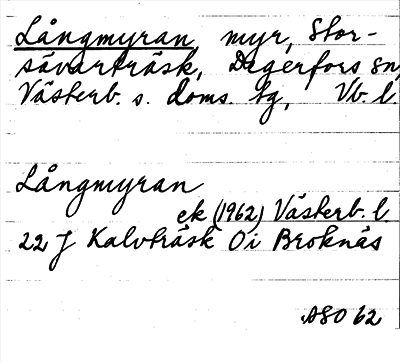 Långmyran, myr, Stor-
sävarträsk, Degerfors sn,
Västerb. s. doms. tg, Vb. l.
Långmyran
ek (1962) Västerb. l
22 J Kalvträsk 0i Broknäs
ASO 62